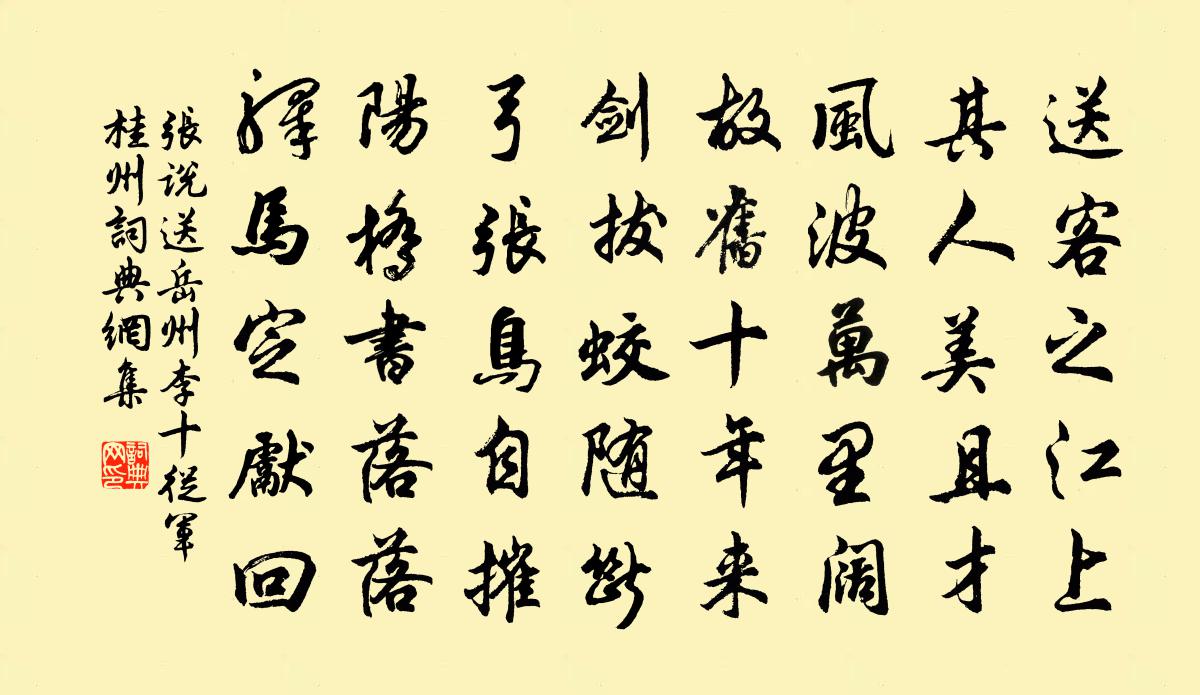 送客之江上
其人美且才
風波萬里闊
故舊十年来
剑拔蛟随斷
弓張鳥自摧
陽橋書落落
驛馬定獻回
張説送岳州李十從軍
桂州詞典網集
詞典网印